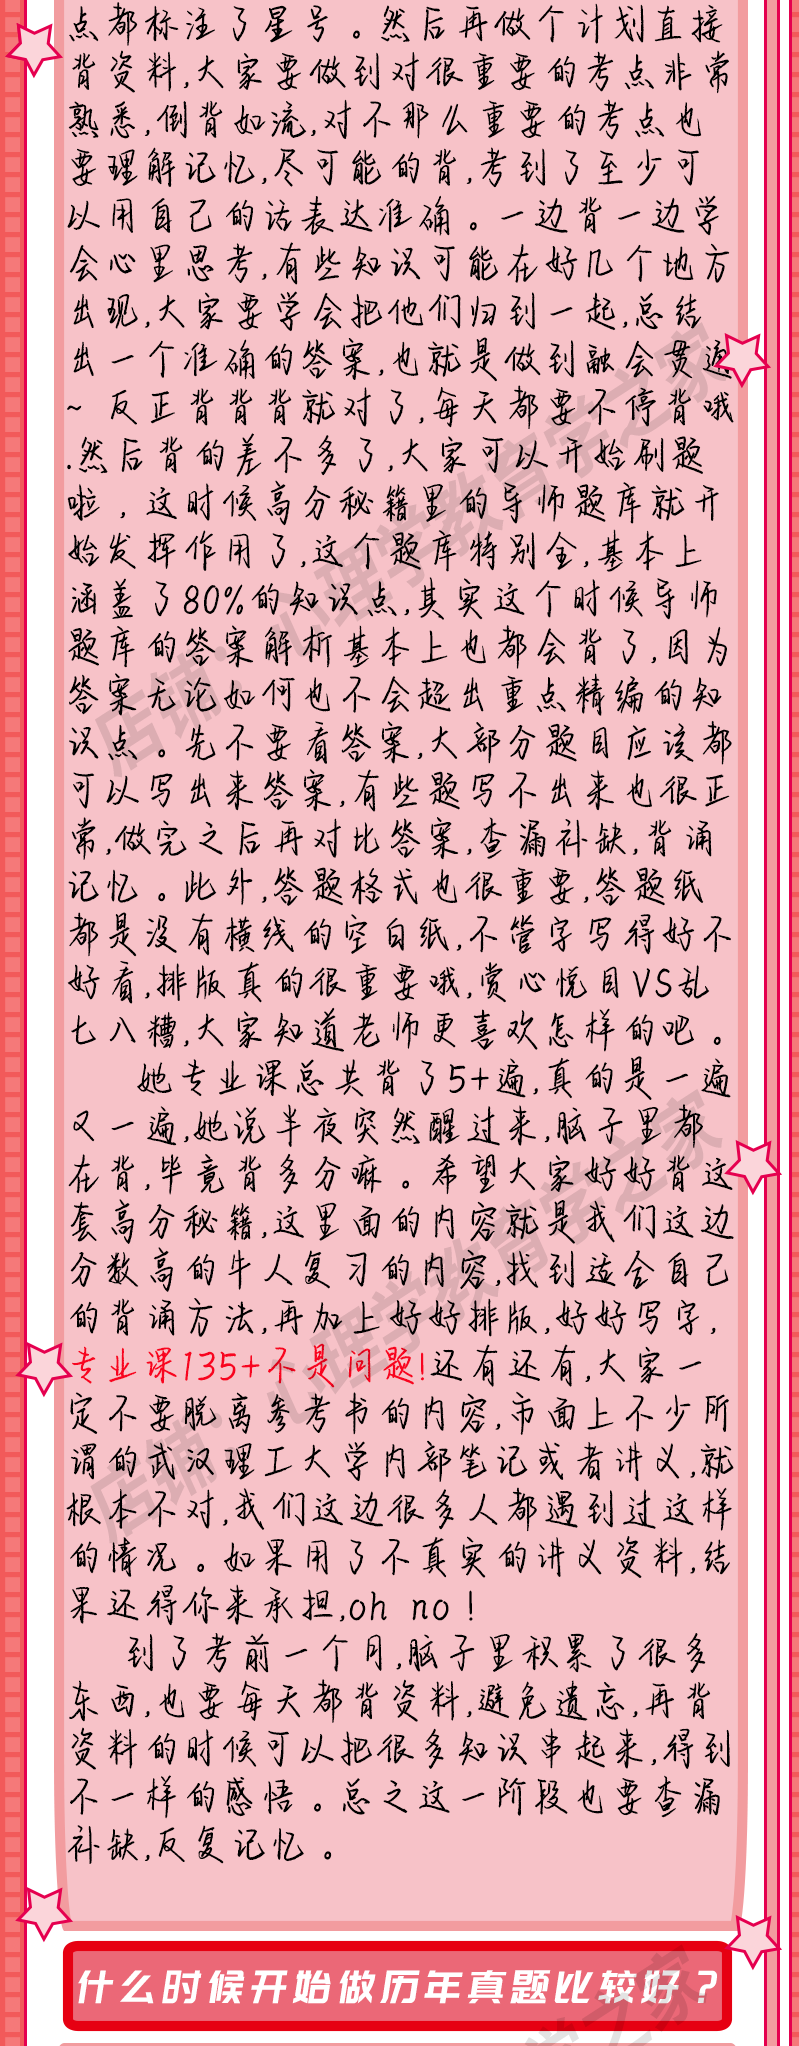 点都标注了星号。然后再做个计划直接
背资料,大家要做到对很重要的考点非常
熟悉,倒背如流,对不那么重要的考点也
要理解记忆,尽可能的背,考到了至少可
以用自己的话表达准确。一边背一边学
会心里思考,有些知识可能在好几个地方
出现,大家要学会把他们归到一起,总结
出一个准确的答案,也就是做到融会贯通
~ 反正背背背就对了,每天都要不停背哦
.然后背的差不多了,大家可以开始刷题
啦，这时候高分秘籍里的导师题库就开
始发挥作用了,这个题库特别全,基本上
涵盖了80%的知识点,其实这个时候导师
题库的答案解析基本上也都会背了,因为
答案无论如何也不会超出重点精编的知
识点。先不要看答案,大部分题目应该都
可以写出来答案,有些题写不出来也很正
常,做完之后再对比答案,查漏补缺,背诵
记忆。此外,答题格式也很重要,答题纸
都是没有横线的空白纸,不管字写得好不
好看,排版真的很重要哦,赏心悦目VS乱
七八糟,大家知道老师更喜欢怎样的吧。
她专业课总共背了5+遍,真的是一遍
又一遍,她说半夜突然醒过来,脑子里都
在背,毕竟背多分嘛。希望大家好好背这
套高分秘籍,这里面的内容就是我们这边
分数高的牛人复习的内容,找到适合自己
的背诵方法,再加上好好排版,好好写字,
专业课135+不是问题!还有还有,大家一
定不要脱离参考书的内容,市面上不少所
谓的武汉理工大学内部笔记或者讲义,就
根本不对,我们这边很多人都遇到过这样
的情况。如果用了不真实的讲义资料,结
果还得你来承担,oh no！
到了考前一个月,脑子里积累了很多
东西,也要每天都背资料,避免遗忘,再背
资料的时候可以把很多知识串起来,得到
不一样的感悟。总之这一阶段也要查漏
补缺,反复记忆。
店铺：心理学教育学之家
店铺：心理学教育学之家
什么时候开始做历年真题比较好？
学之家